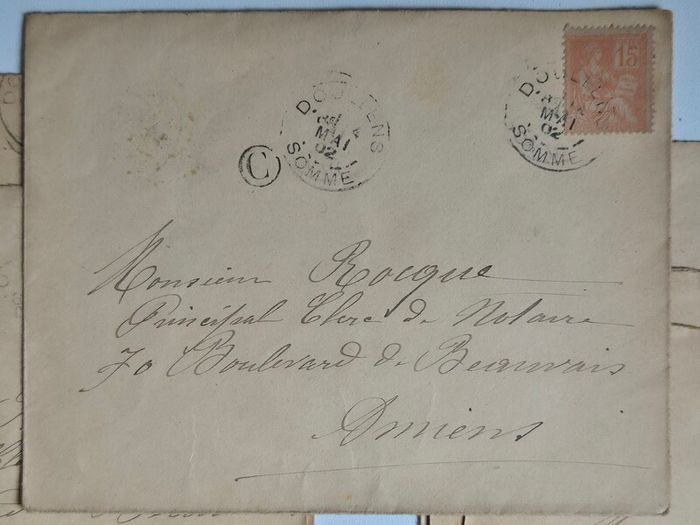 DOULLENS
MAI
02
SOMME
C
15
DOULLEN
MAI
02
SOMME
Monsieur Rocque
Principal Clerc de Notaire
70 Boulevard de Beauvais
Amiens